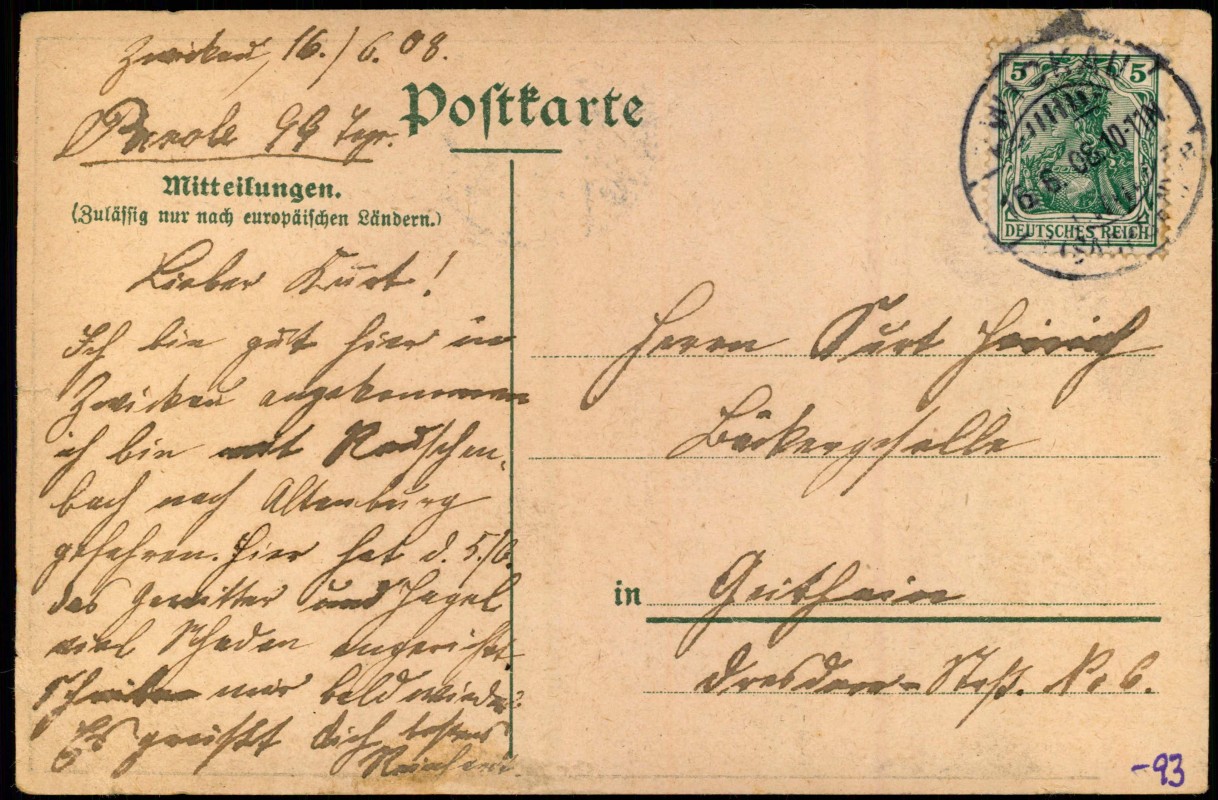 Zwickau, 16./6. 08.
Parole 99 Tge.
Postkarte
Mitteilungen.
(Zulässig nur nach europäischen Ländern.)
Lieber Kurt!
Ich bin gut hier in
Zwickau angekommen
ich bin mit Rauschen-
bach nach Altenburg
gefahren. Hier hat d. 5./6.
das Gewitter und Hagel
viel Schaden angericht.
Schreibe mir bald wieder
Es grüßt Dich bestens
5 5
DEUTSCHES REICH
ZWICKAU
6. 08. 10-11 N
Herrn Kurt Heinrich
Bäckergeselle
in Geithain
Dresdner-Straß. No 6.
-93